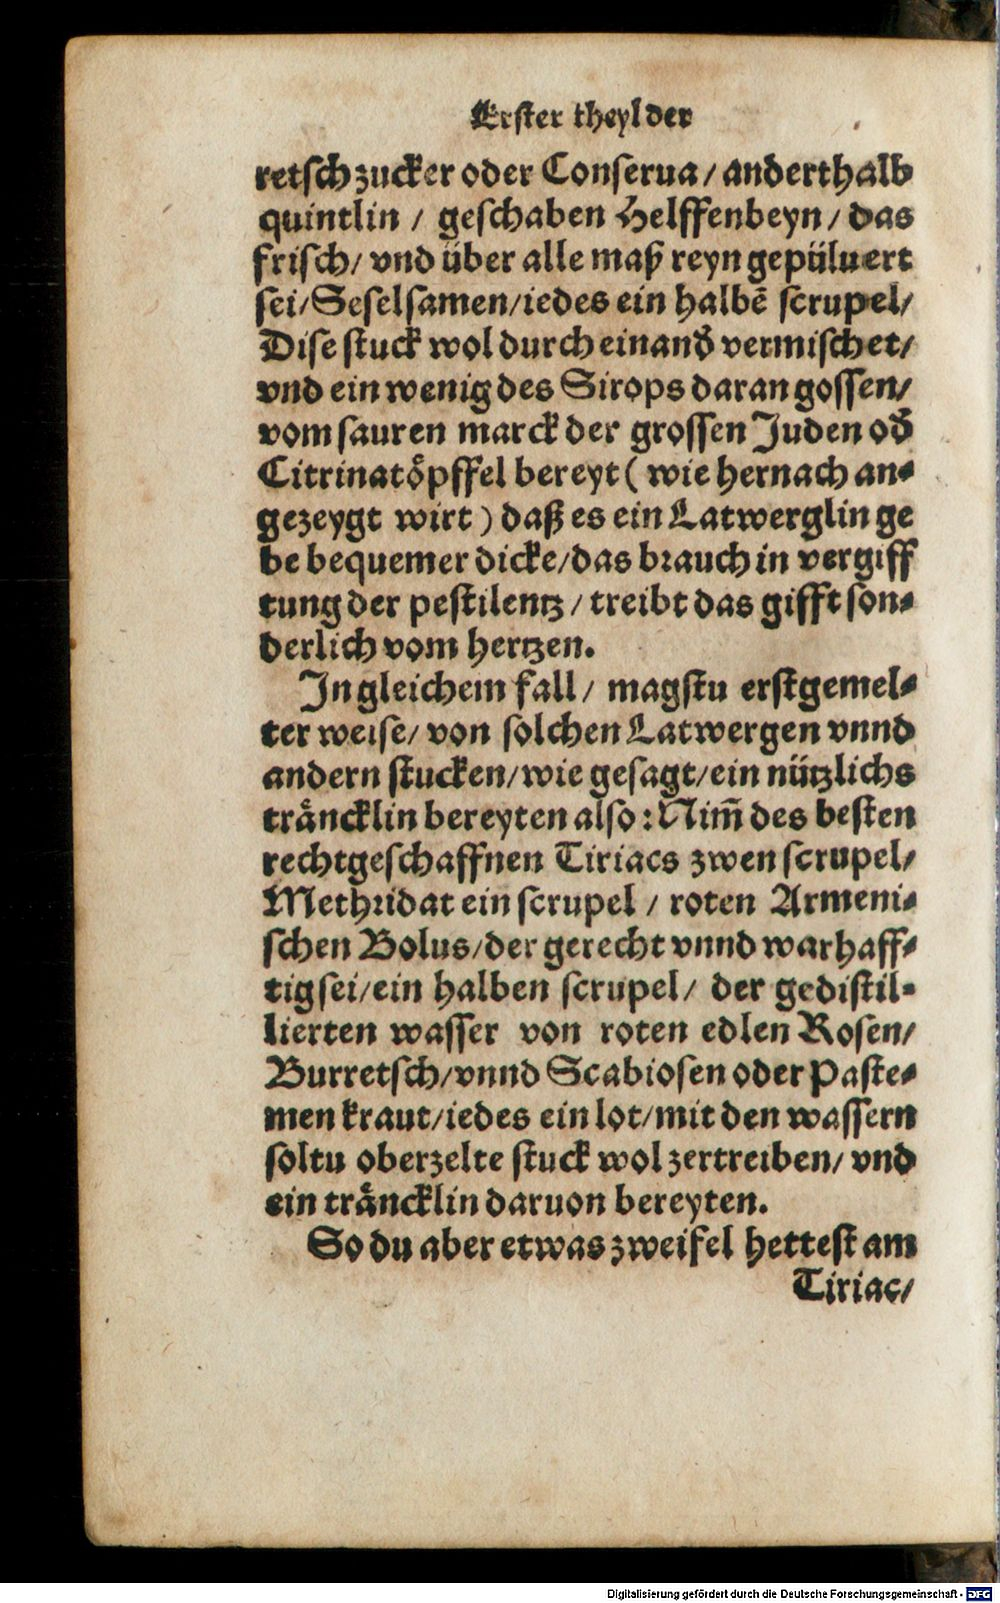 Erster theyl der
retsch zucker oder Conserua / anderthalb
quintlin / geschaben Helffenbeyn / das
frisch / vnd über alle maß reyn gepülu̇ert
sei / Seselsamen / iedes ein halbē scrupel /
Dise stuck wol durch einand̄ vermischet /
vnd ein wenig des Sirops daran gossen /
vom sauren marck der grossen Juden od̄
Citrinatöpffel bereyt ( wie hernach an⸗
gezeygt wirt ) daß es ein Latwerglin ge
be bequemer dicke / das brauch in vergiff
tung der pestilentz / treibt das gifft son⸗
derlich vom hertzen.
In gleichem fall / magstu erstgemel⸗
ter weise / von solchen Latwergen vnnd
andern stucken / wie gesagt / ein nützlichs
träncklin bereyten also : Nim̄ des besten
rechtgeschaffnen Tiriacs zwen scrupel /
Methridat ein scrupel / roten Armeni⸗
schen Bolus / der gerecht vnnd warhaff⸗
tig sei / ein halben scrupel / der gedistil⸗
lierten wasser von roten edlen Rosen /
Burretsch / vnnd Scabiosen oder Paste⸗
men kraut / iedes ein lot / mit den wassern
soltu oberzelte stuck wol zertreiben / vnd
ein träncklin daruon bereyten.
So du aber etwas zweifel hettest am
Tiriac /
Digitalisierung gefördert durch die Deutsche Forschungsgemeinschaft - DFG